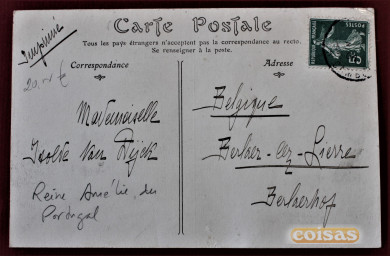 Imprimé
Carte Postale
Tous les pays étrangers n'acceptent pas la correspondance au recto.
Se renseigner à la poste.
Correspondance
Adresse
5c
Mademoiselle
Isolda Van Dijck
Reine Amélie du
Portugal
Belgique
Berlaer-lez-Lierre
Berlaerhof
coisas